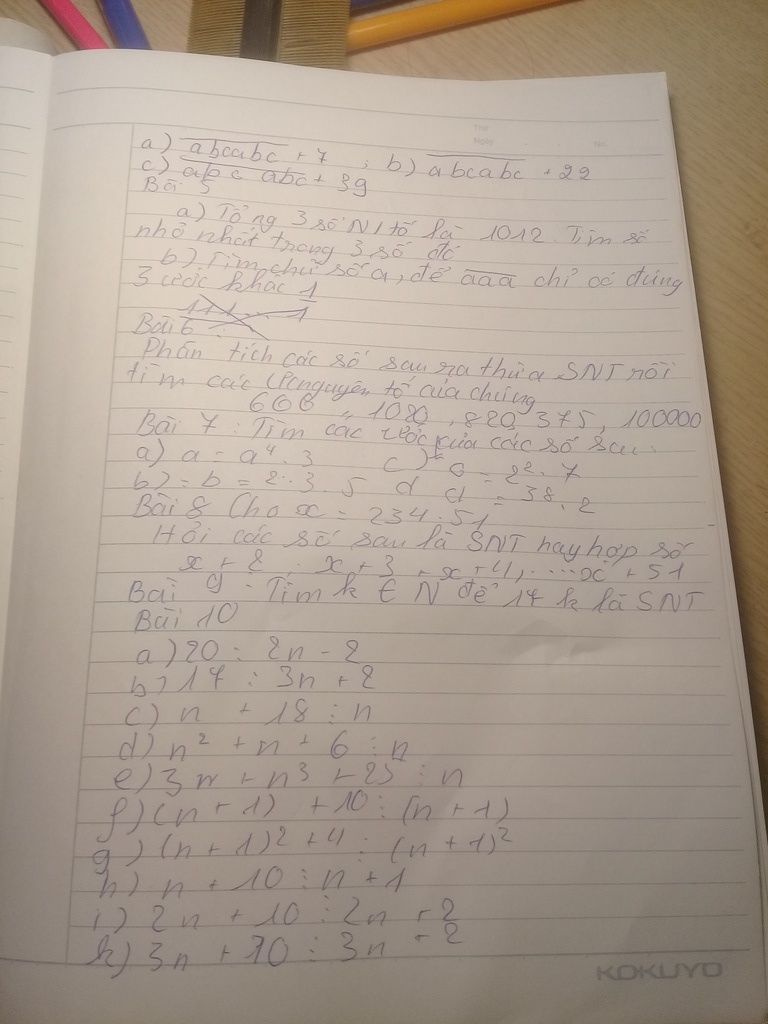 Thứ
Ngày . . No.
a) abcabc + 7 ; b) abcabc + 22
c) abc abc + 39
Bài 5
a) Tổng 3 số N/tố là 1012. Tìm số
nhỏ nhất trong 3 số đó
b) Tìm chữ số a, để aaa chỉ có đúng
3 ước khác 1
111...1
Bài 6 :
Phân tích các số sau ra thừa SNT rồi
tìm các nguyên tố của chúng
600, 1080, 820, 375, 100000
Bài 7 : Tìm các ước của các số sau.
a) a = a⁴ . 3 c) = 2² . 7
b) = b = 2 . 3 . 5 d d = 38 . 2
Bài 8 Cho x = 234.51
Hỏi các số sau là SNT hay hợp số
x + 2 . x + 3 , x + 4, ....x + 51
Bài 9 . Tìm k ∈ N để 17 k là SNT
Bài 10
a) 20 ⋮ 2n - 2
b) 17 ⋮ 3n + 2
c) n + 18 ⋮ n
d) n² + n + 6 ⋮ n
e) 3n + n³ + 25 ⋮ n
f) (n + 1) + 10 ⋮ (n + 1)
g) (n + 1)² + 4 ⋮ (n + 1)²
h) n + 10 ⋮ n + 1
i) 2n + 10 ⋮ 2n + 2
k) 3n + 10 ⋮ 3n - 2
KOKUYO